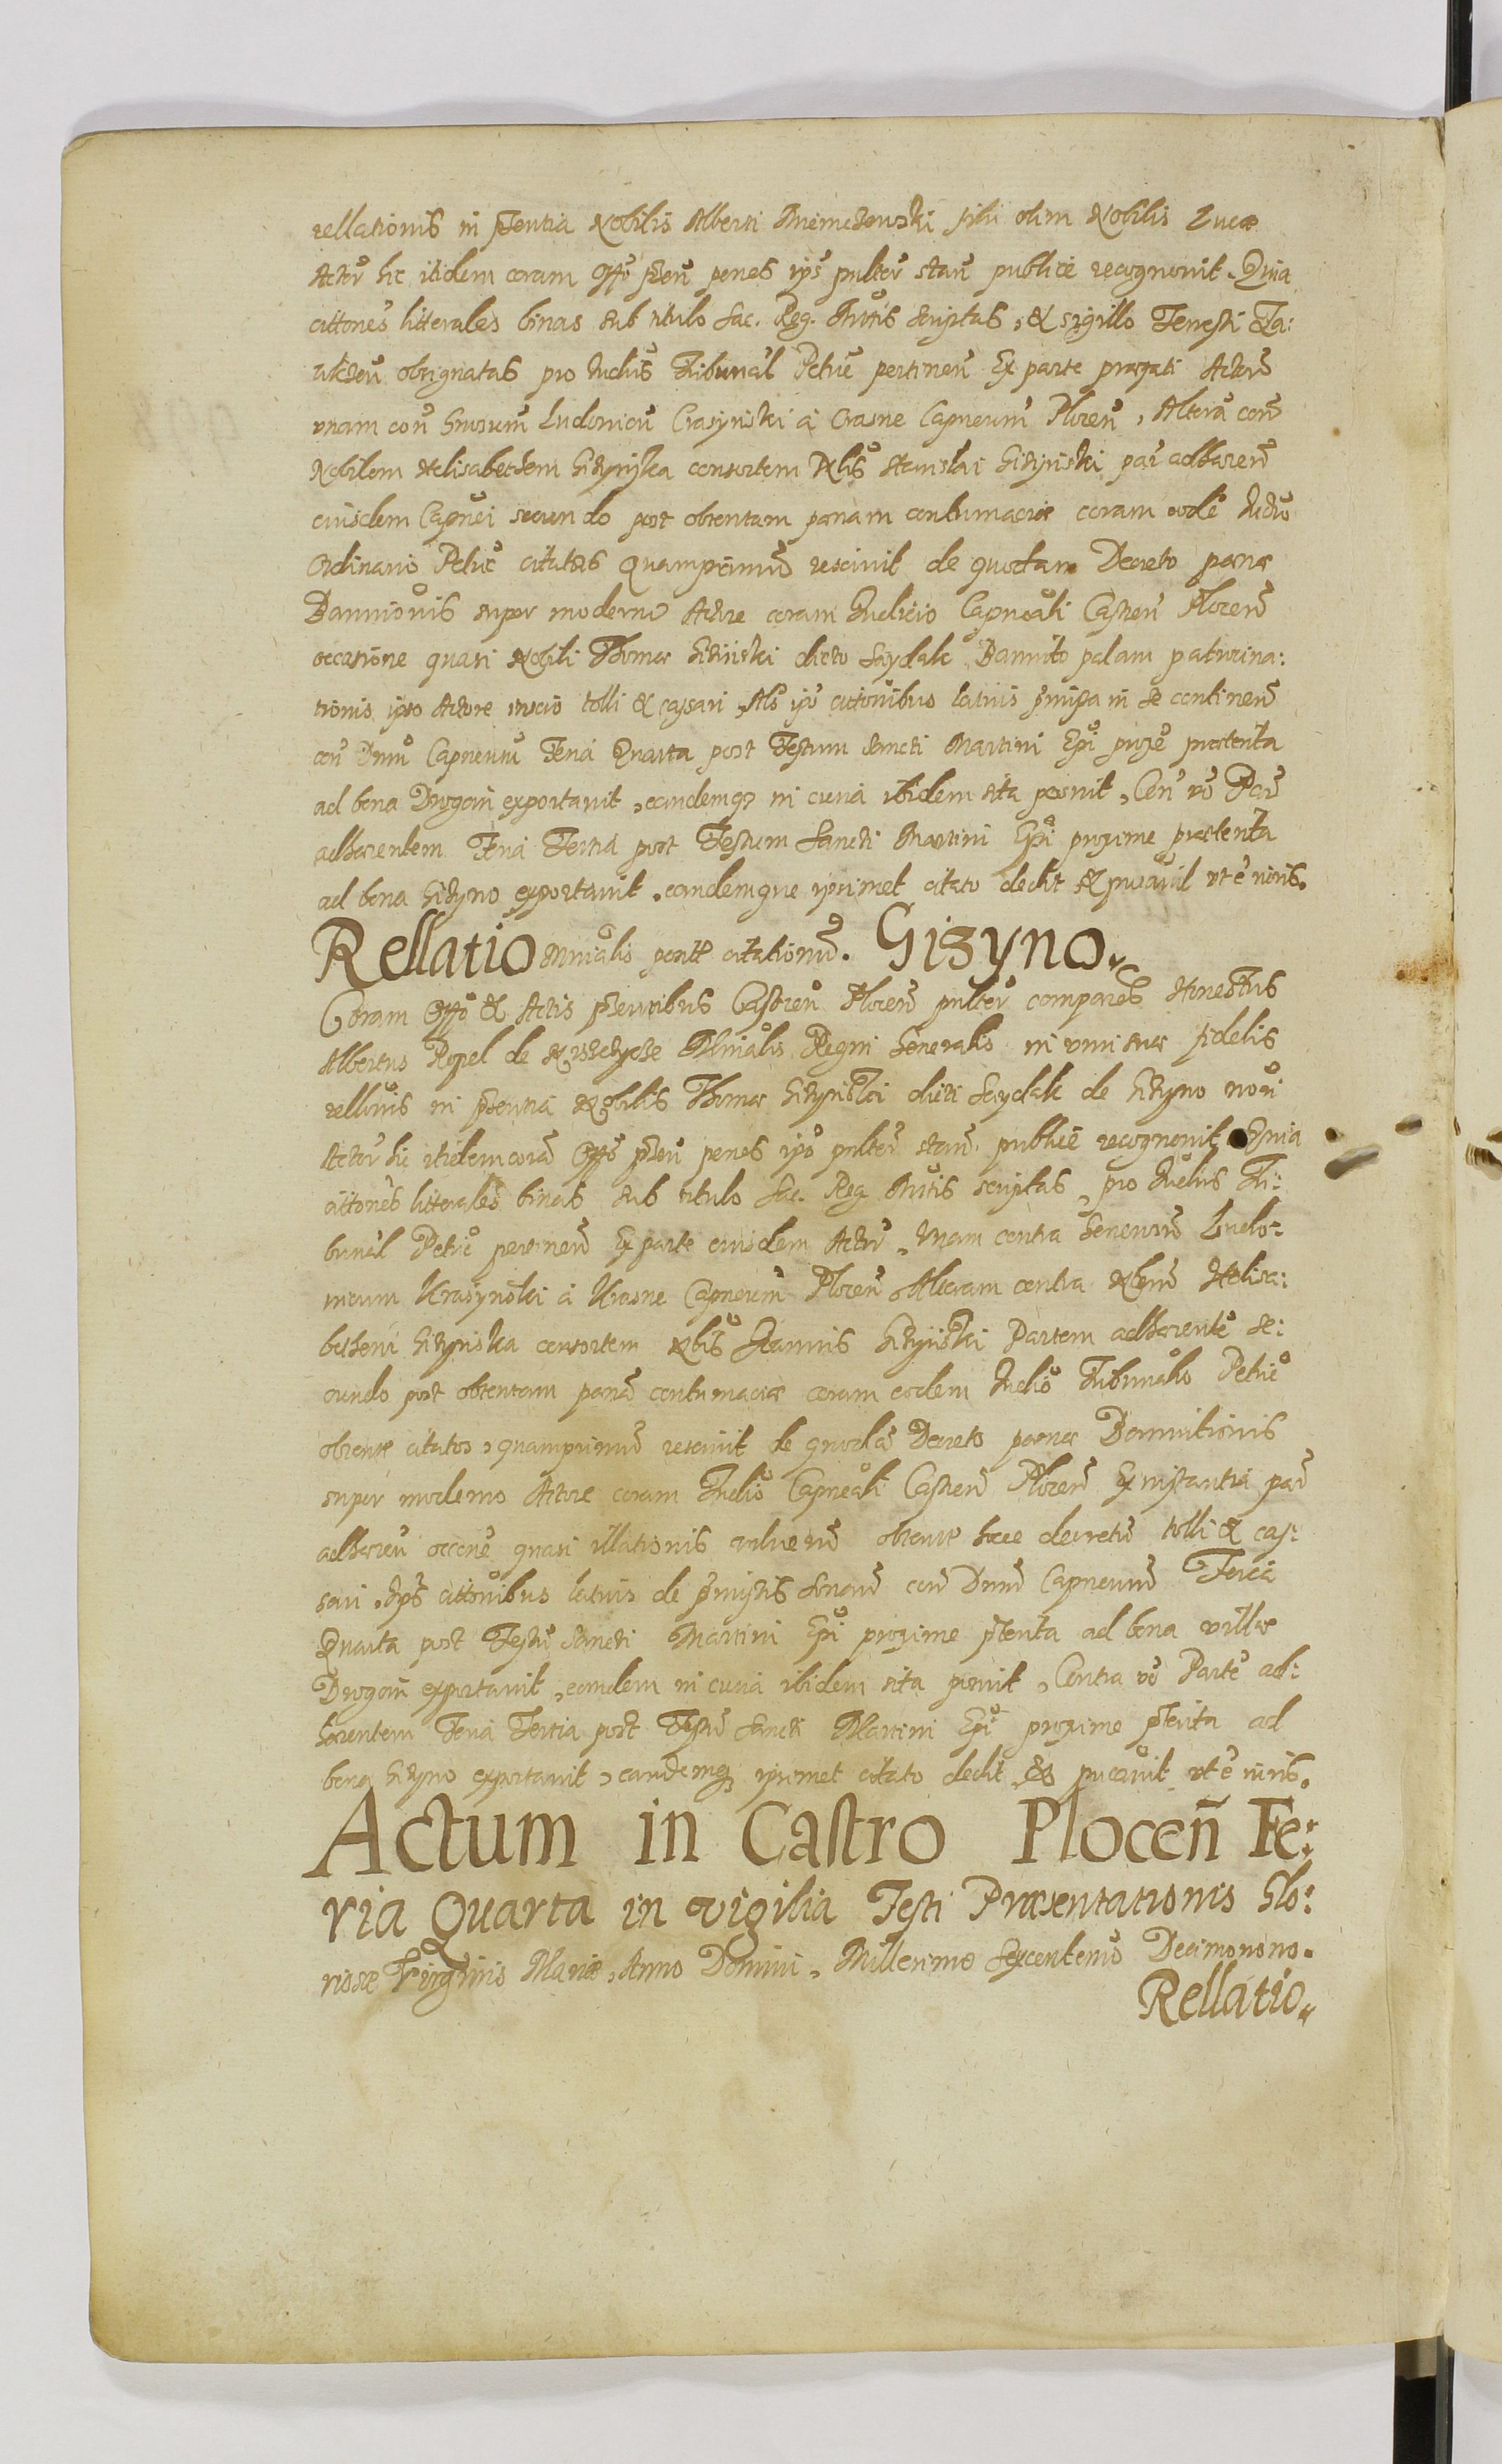 rellationis in pñentia Nobilis Alberti filii olim Nobilis Lucæ
Actor̃ hic itidem coram Offo pñen penes ips̃ pulter̃ stan̄ publice recognovit. Quia
cittones litterales binas sub titulo Sac. Reg. Mttis scriptas, & sigillo Terrestri
obsignatas pro Iudiis Tribunal Petric̃ pertinen̄ Ex parte præfati Actor̃
unam con̄ Gnosum Ludovicũ Crasynski a Crasne Capneum̃ Plocen̄, Alterã con̄
Nobilem Helisabethem Gizynska consortem Nblis Stanislai Gizynski par̃ adhæren̄
eiusdem Capnei secundo post obtentam pœnam contumaciæ coram eodẽ Iudio
Ordinario Petric̃ citatas Quamprimũ rescivit de quodam Decreto pœnæ
Bannionis super moderno Actore coram Iudicio Capneali Castren̄ Plocen̄
occasione quasi Nobili Thomæ Gizinski dicto Saydak Bannito palam patrocina:
tionis ipso Actore inscio tolli & cassari, Als̃ ips̃ cittonibus latius p̃missa in se continen̄
con̄ Dnm̃ Capneum̃ Feria Quarta post Festum Sancti Martini Epi proxe præterita
ad bona Drogoin exportavit, eandemq3 in curia ibidem sita posuit, Con̄ vo Par̃
adhærentem Feria Tertia post Festum Sancti Martini Epi proxime præterita
ad bona Gizyno exportavit, eandemque ipsimet citato dedit & pucavit ut ẽ iuris.
Rellatio Mnialis pontt citationũ. Gizyno.
Coram Offo & Actis pñentibus Castren̄ Plocen̄ pulter̃ comparẽs Honestus
Albertus Popel de Mnialis Regni Generalis in vim suæ fidelis
rellonis in pñentia Nobilis Thomæ Gizynski dicti Saydak de Gizyno
Actor̃ hic itidem corã Offo pñen penes ips̃ pulter̃ stan̄ publice recognovit Quia
cittones litterales binas sub titulo Sac. Reg. Mttis scriptas, pro Iudiis Tri:
bunal Petric̃ pertinen̄ Ex parte eiusdem Actor̃, Unam contra Generosũ Ludo:
vicum Krasynski a Krasne Capneum̃ Plocen̄ Alteram contra Nblem̃ Helisa:
bethem̃ Gizynska consortem Nblis Gizynski Partem adhærentẽ se:
cundo post obtentam pœnã contumaciæ coram eodem Iudio Tribunalis Petric̃
obtentæ citatos, quamprimũ rescivit de quodã Decreto pœnæ Bannitionis
super moderno Actore coram Iudio Capneali Castren̄ Plocen̄ Ex instantia par̃
adhæren̄ occõne quasi illationis vulnerũ obtentæ hocce decretũ tolli & cas:
sari, Ips̃ cittonibus latius de p̃missis sonan̄ con̄ Dnm̃ Capneum̃ Feria
Quarta post Festũ Sancti Martini Epi proxime p̃terita ad bona villæ
Drogoin exportavit, eandem in curia ibidem sita posuit, Contra vo Partẽ ad:
hærentem Feria Tertia post Festũ Sancti Martini Epi proxime p̃terita ad
bona Gizyno exportavit, eandemq3 ipsimet citato dedit & pucavit ut ẽ iuris.
Actum in Castro Plocen̄ Fe:
ria Quarta in vigilia Festi Præsentationis Glo:
riosæ Virginis Mariæ, Anno Domini, Millesimo Sexcentesimo Decimonono.
Rellatio